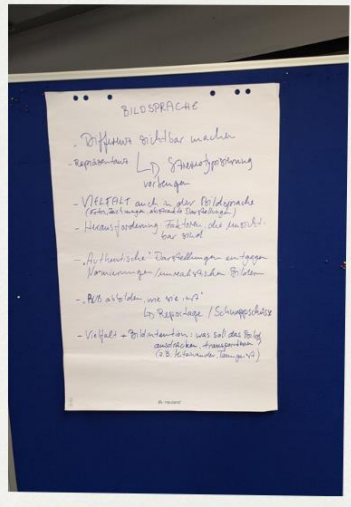 BILDSPRACHE
- Differenz sichtbar machen
- Repräsentanz ↳ Stereotypisierung
vorbeugen
- VIELFALT auch in der Bildsprache
(Fotos, Zeichnungen, abstrakte Darstellungen)
- Herausforderung: Faktoren, die unsicht-
bar sind
- "Authentische" Darstellungen entgegen
Normierungen / unrealistischen Bildern
- abbilden, wie sie "ist"
↳ Reportage / Schnappschüsse
- Vielfalt + Bildintention: was soll das Bild
ausdrücken, transportieren
(z.B. Miteinander,